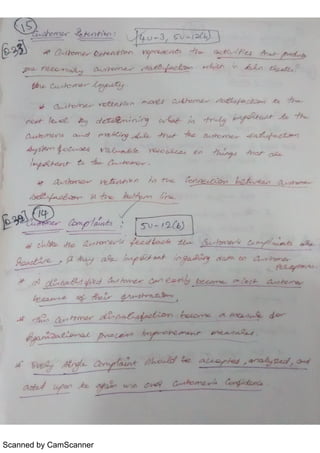 15
Customer Retention: 4U-3, 5U-12(b)
Q.38
* Customer Retention represents the activities that produce
the necessary customer satisfaction which in turn creates
the customer loyalty
* Customer retention moves customer satisfaction to the
next level by determining what is truly important to the
customers and making sure that the customer satisfaction
system focuses valuable resources on things that are
important to the customer.
* Customer retention is the connection between customer
satisfaction & the bottom line.
Q.39 14
Customer Complaints: 5U-12(b)
* Unlike the customer's feedback the customer's complaints are
Reactive, & they are important in gathering data on customer
* A dissatisfied customer can easily become a lost customer
because of their frustration,
* This customer dissatisfaction become a measure for
organizational process improvement measures.
* Every single complaint should be accepted, analyzed, and
acted upon to again win over customer's confidence
Scanned by CamScanner